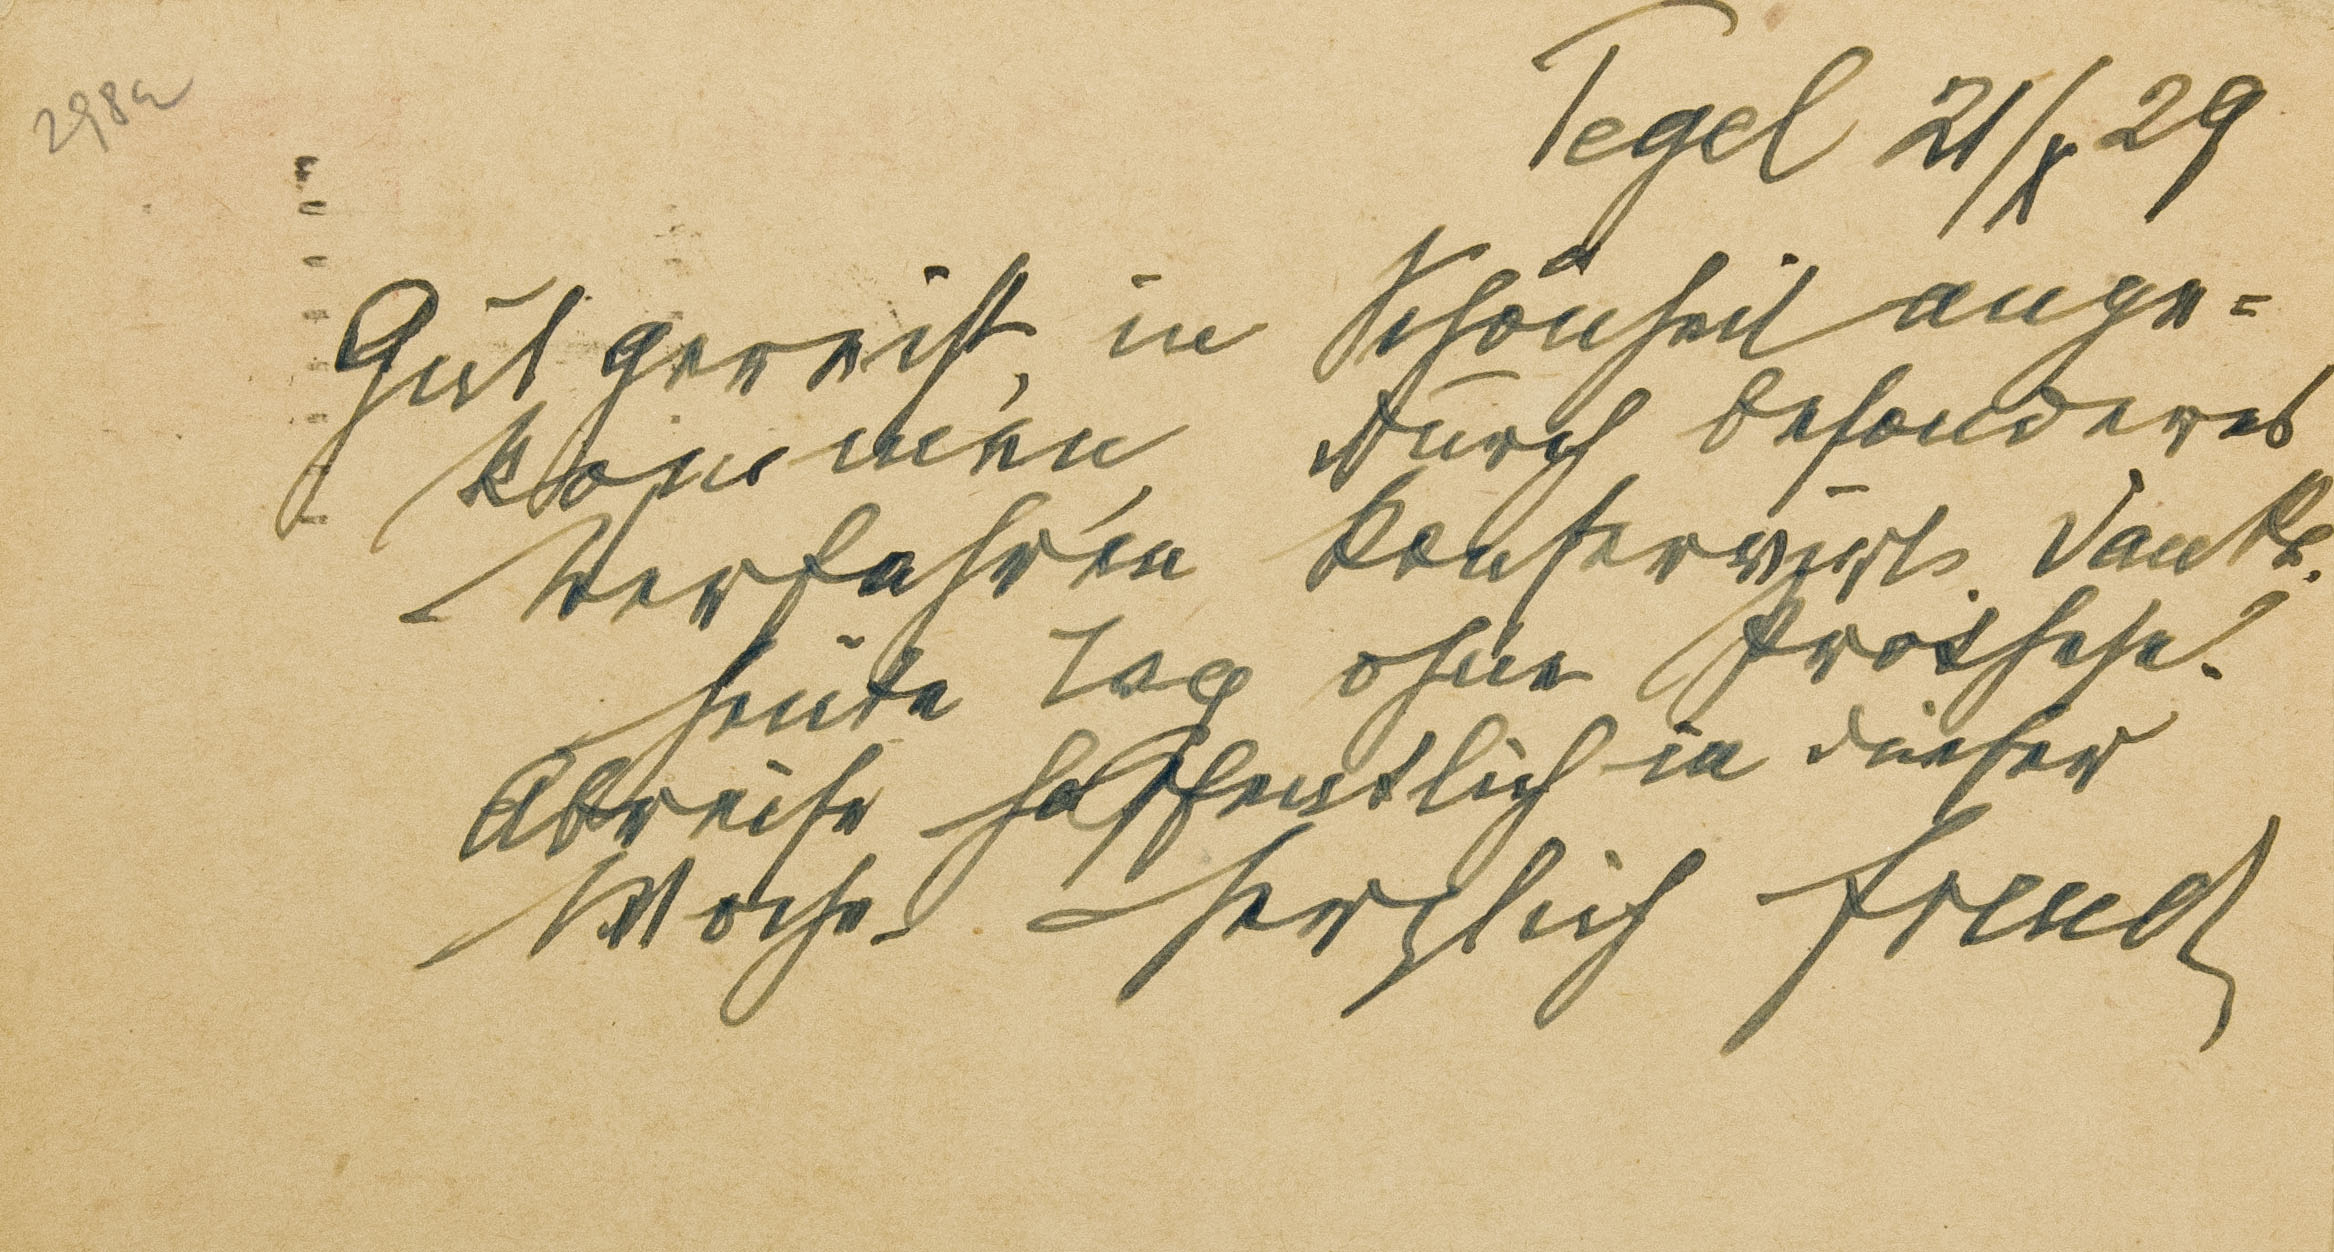 298a
Tegel 21/X 29
Gut gereist, in Schönheit ange-
kommen, durch besonderes
Verfahren konservirt. Danke.
Heute Tag ohne Prothese!
Abreise hoffentlich in dieser
Woche. Herzlich Freud